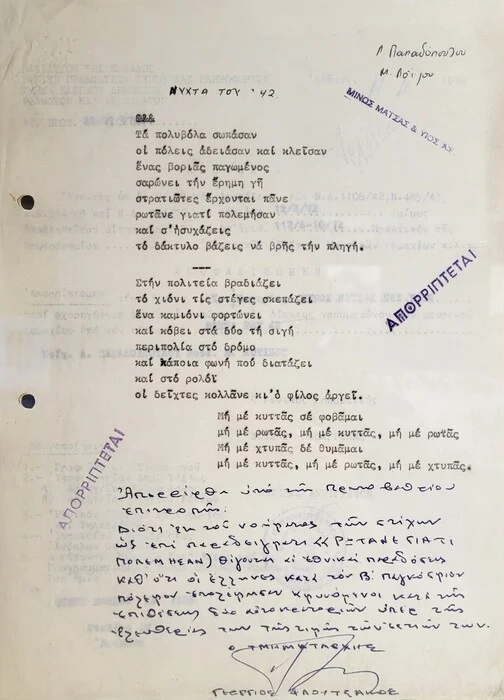 Λ. Παπαδόπουλου
Μ. Λόϊζου
ΝΥΧΤΑ ΤΟΥ '42
ΜΙΝΩΣ ΜΑΤΣΑΣ & ΥΙΟΣ
Τά πολυβόλα σωπάσαν
οἱ πόλεις ἀδειάσαν καί κλεῖσαν
ἕνας βοριᾶς παγωμένος
σαρώνει τήν ἔρημη γῆ
στρατιῶτες ἔρχονται πᾶνε
ρωτᾶνε γιατί πολεμῆσαν
καί σ'ἡσυχάζεις
τό δάκτυλο βάζεις νά βρῆς τήν πληγή.
ΑΠΟΡΡΙΠΤΕΤΑΙ
Στήν πολιτεία βραδιάζει
τό χιόνι τίς στέγες σκεπάζει
ἕνα καμιόνι φορτώνει
καί κόβει στά δύο τή σιγή
περιπολία στό δρόμο
καί κάποια φωνή πού διατάζει
καί στό ρολόϊ
οἱ δεῖχτες κολλᾶνε κι'ὁ φίλος ἀργεῖ.
Μή μέ κυττᾶς σέ φοβᾶμαι
μή μέ ρωτᾶς, μή μέ κυττᾶς, μή μέ ρωτᾶς
Μή μέ χτυπᾶς δέ θυμᾶμαι
μή μέ κυττᾶς, μή μέ ρωτᾶς, μή μέ χτυπᾶς.
ΑΠΟΡΡΙΠΤΕΤΑΙ
Ἀπερρίφθη ὑπό τῆς Πρωτοβαθμίου
ἐπιτροπῆς
Διότι ἐκ τοῦ νοήματος τῶν στίχων
ὡς ἐπί παραδείγματι <<ΡΩΤΑΝΕ ΓΙΑΤΙ
ΠΟΛΕΜΗΣΑΝ) θίγονται αἱ ἐθνικαί παραδόσεις
καθ' ὅτι οἱ ἕλληνες κατά τόν Β! παγκόσμιον
πόλεμον ἐπολέμησαν ἀμυνόμενοι κατά τῆς
ἐπιθέσεως δύο αὐτοκρατοριῶν ὑπέρ τῆς
ἐλευθερίας των τῆς τιμῆς των
Ο ΤΜΗΜΑΤΑΡΧΗΣ
ΓΕΩΡΓΙΟΣ